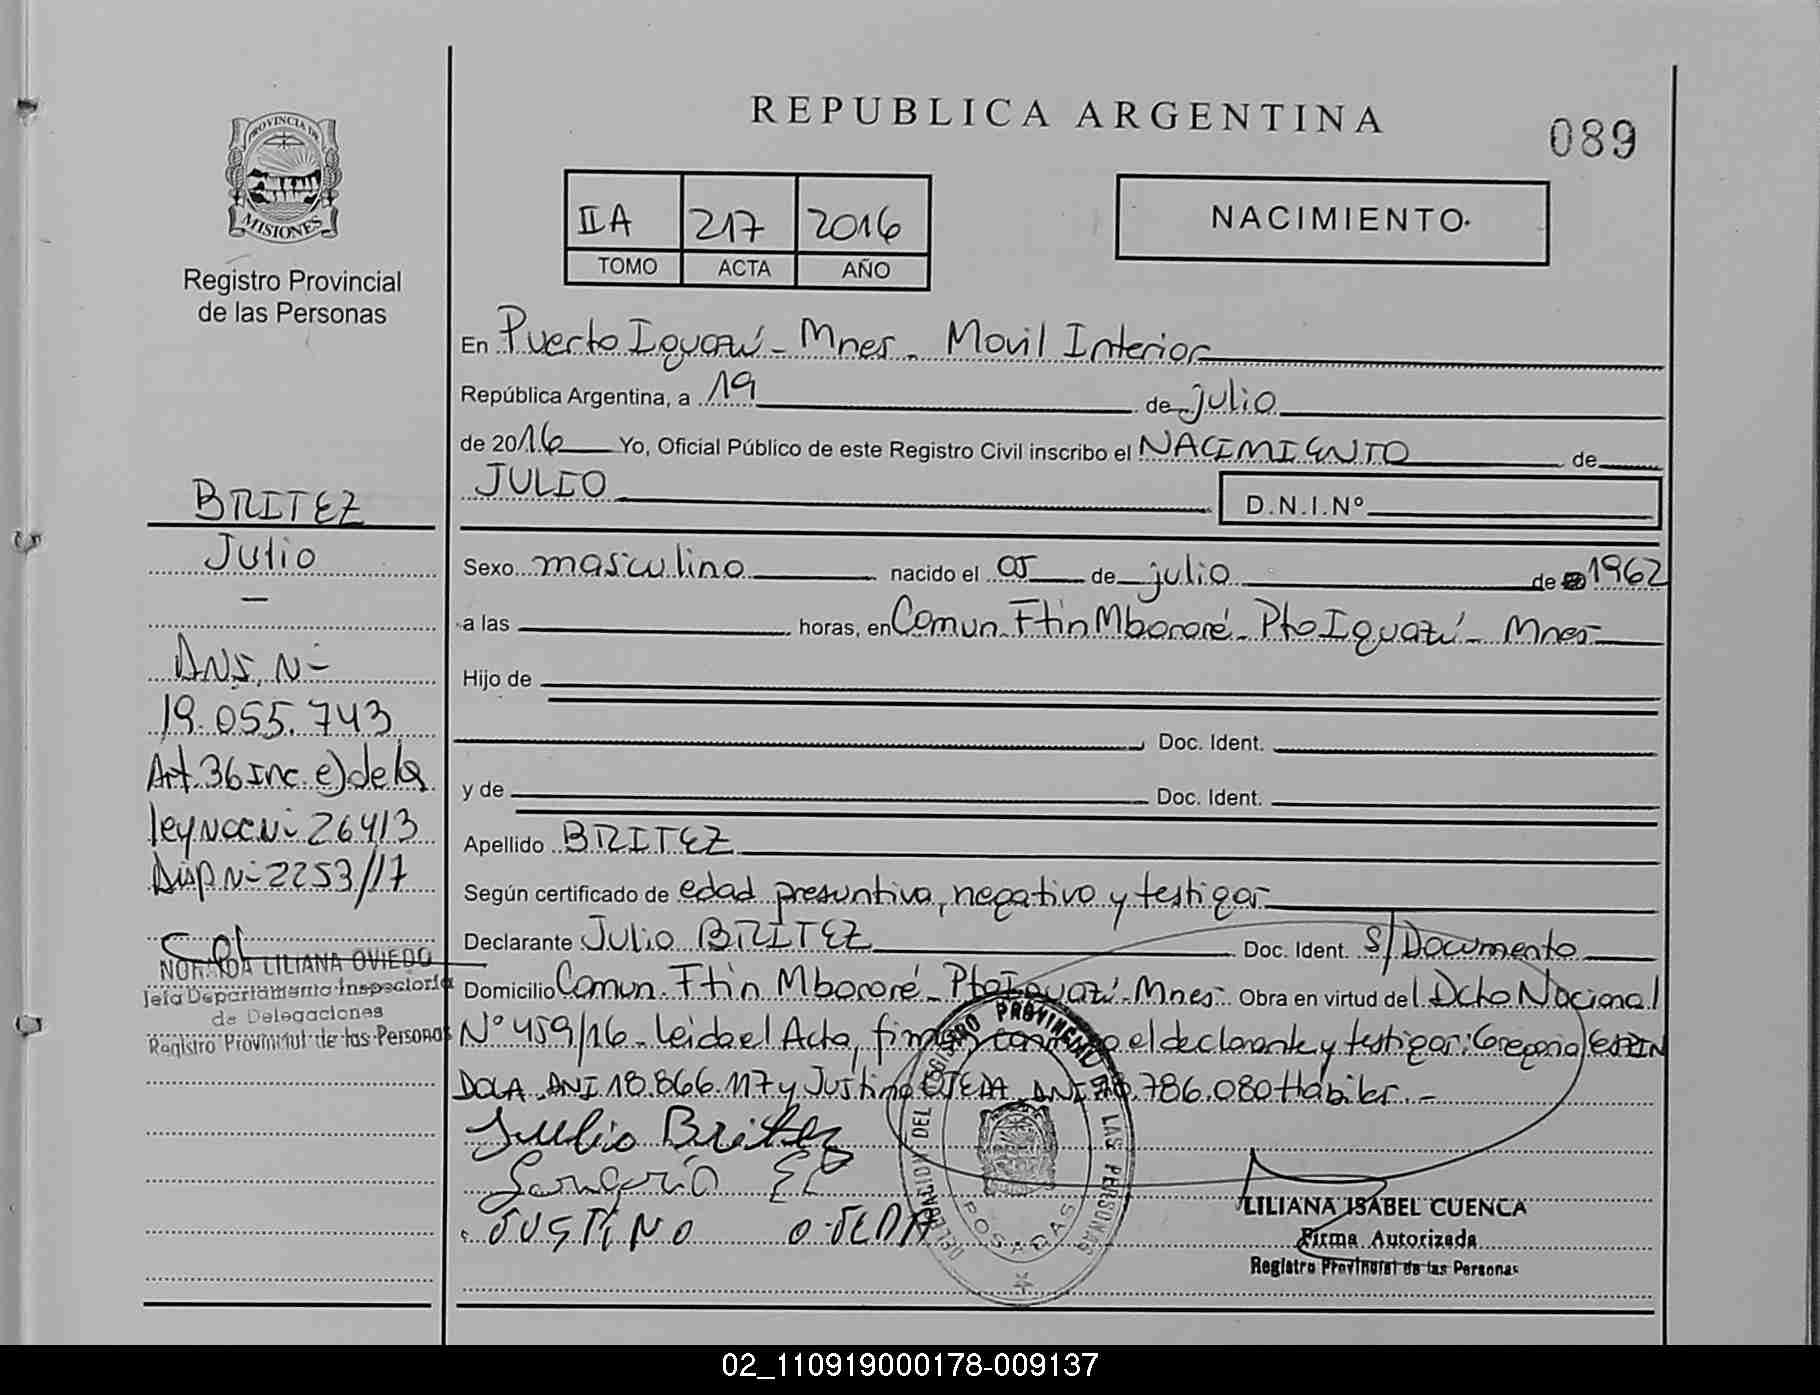 REPUBLICA ARGENTINA
089
PROVINCIA DE
MISIONES
Registro Provincial
de las Personas
IIA 217 2016
TOMO ACTA AÑO
NACIMIENTO
En Puerto Iguazú - Mnes. Movil Interior
República Argentina, a 19 de julio
de 2016 Yo, Oficial Público de este Registro Civil inscribo el NACIMIENTO de
JULIO D.N.I.Nº
BRITEZ
Julio
-
DNI. Nº
19.055.743
Art. 36 Inc. e) de la
ley nac Nº 26413
Disp Nº 2253/17
NORMA LILIANA OVIEDO
Jefa Departamento Inspectoría
de Delegaciones
Registro Provincial de las Personas
Sexo masculino nacido el 05 de julio de 1962
a las horas, en Comun. Ftin Mbororé - Pto Iguazú - Mnes -
Hijo de
Doc. Ident.
y de Doc. Ident.
Apellido BRITEZ
Según certificado de edad presuntiva, negativo y testigos
Declarante Julio BRITEZ Doc. Ident. S/Documento
Domicilio Comun. Ftin Mbororé - Pto Iguazú - Mnes - Obra en virtud del Dcto Nacional
Nº 459/16 - Leida el Acta, firman conmigo el declarante y testigos: Gregorio ESPIN
DOLA DNI 18.866.117 y Justino OJEDA DNI 786.080 Habiles. -
Julio Britez
JUSTINO OJEDA
DELEGACION DEL REGISTRO PROVINCIAL DE LAS PERSONAS
POSADAS
LILIANA ISABEL CUENCA
Firma Autorizada
Registro Provincial de las Personas
02_110919000178-009137